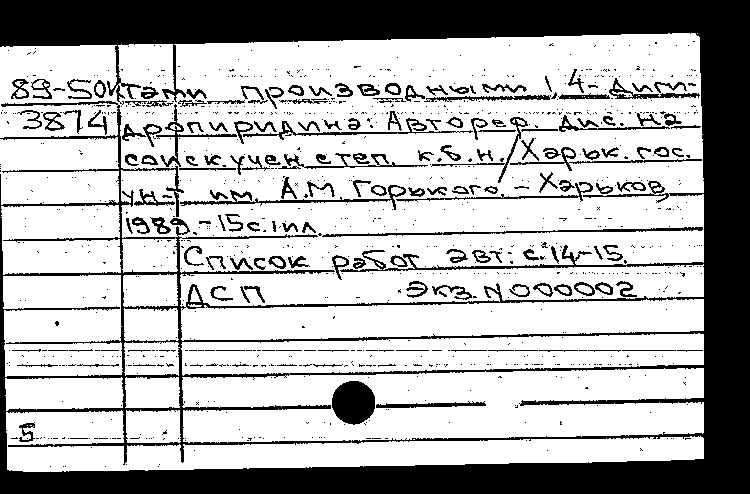 89-50ктами производными 1,4-диги-
3874 дропиридина: Автореф. дис. на
соиск. учен. степ. к.б.н. / Харьк. гос.
ун-т им. А.М. Горького. – Харьков,
1989. – 15с. ил.
Список работ авт.: с. 14-15.
ДСП Экз. N 000002
5